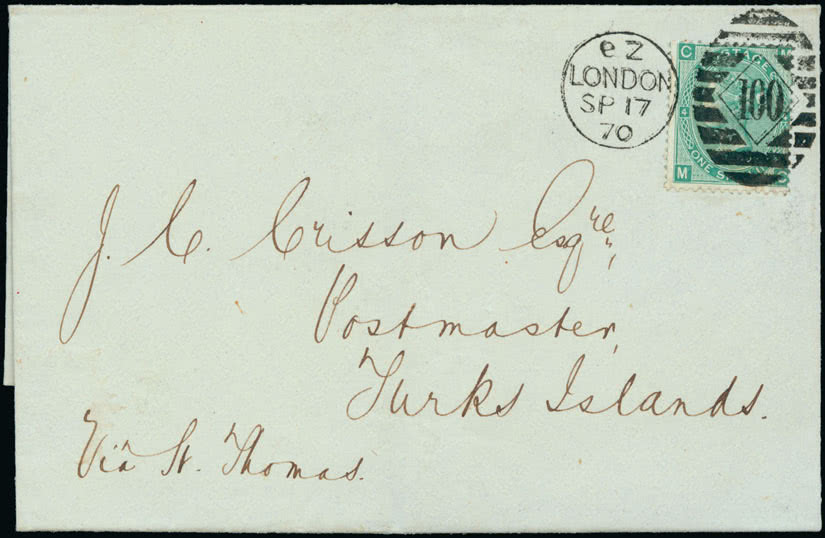 e Z
LONDON
SP 17
70
100
C
M
POSTAGE
4
ONE S
M
J. C. Crisson Esqre,
Postmaster,
Turks Islands.
Via St. Thomas.